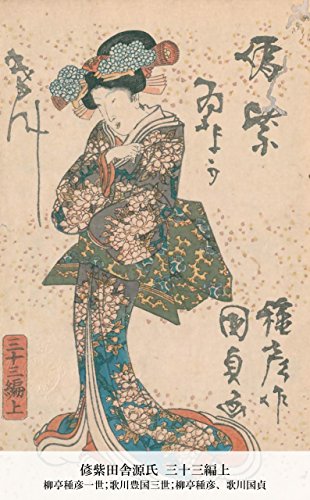 偐紫
ゐなか
種彦作
国貞画
三十三編上
偐紫田舎源氏 三十三編上
柳亭種彦一世;歌川豊国三世;柳亭種彦、歌川国貞